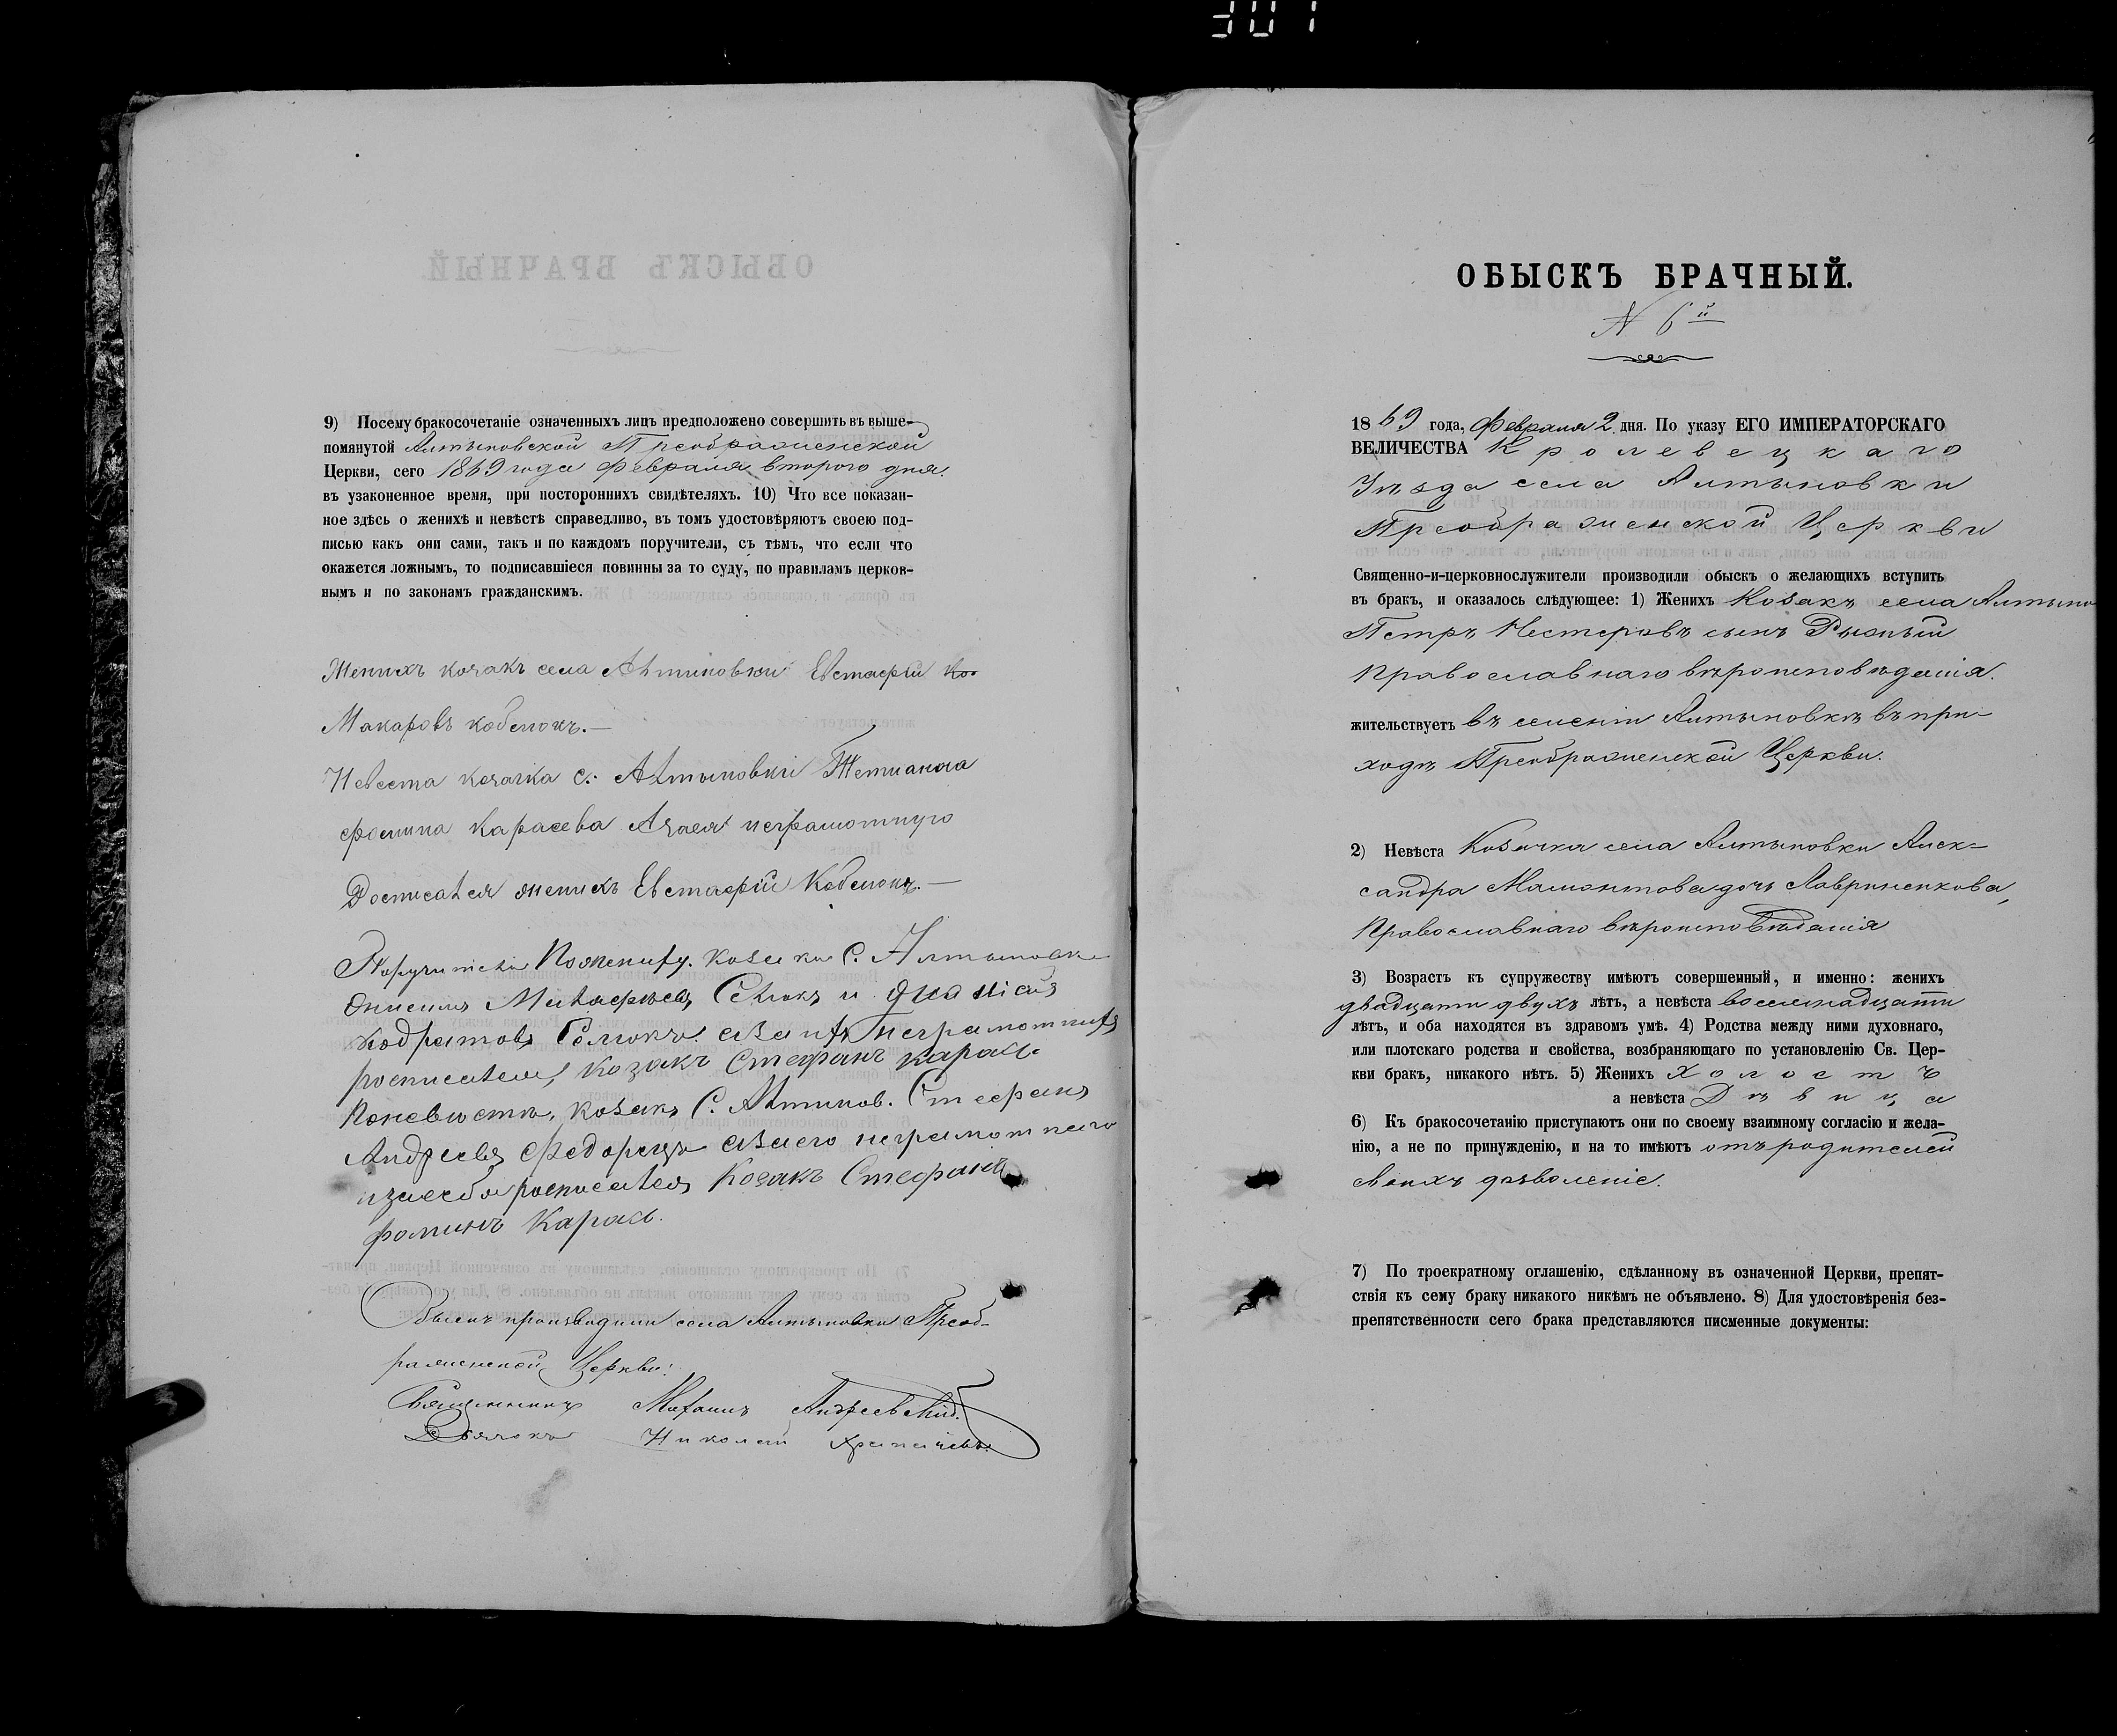 301
9) Посему бракосочетаніе означенныхъ лицъ предположено совершить въ выше-
помянутой Алтыновской Преображенской
Церкви, сего 1869 года февраля второго дня.
въ узаконенное время, при постороннихъ свидѣтеляхъ. 10) Что все показан-
ное здѣсь о женихѣ и невѣстѣ справедливо, въ томъ удостовѣряютъ своею под-
писью какъ они сами, такъ и по каждомъ поручители, съ тѣмъ, что если что
окажется ложнымъ, то подписавшіеся повинны за то суду, по правиламъ церков-
нымъ и по законамъ гражданскимъ.
Женихъ козакъ села Алтиновки Евстафій
Макаровъ
Невеста козачка с. Алтыновки
фомина Карасева Азаея неграмотную
Росписался женихъ Евстафій
Поручители По жениху. козаки С. Алтыновки
и
Кодратовъ азаихъ неграмотнихъ
росписался козакъ Стефанъ Карась
Поневисти, козакъ С. Алтинов. Стефанъ
Андреевъ Федорецъ азаего неграмотнаго
изасебя росписался Козакъ Стефанъ
фоминъ Карась.
Обыскъ производили села Алтыновки Преоб-
раженской Церкви:
Священникъ Андреевскій.
Дьячокъ Николай
ОБЫСКЪ БРАЧНЫЙ.
N 6й
1869 года, февраля 2 дня. По указу ЕГО ИМПЕРАТОРСКАГО
ВЕЛИЧЕСТВА Кролевецкаго
Уѣзда села Алтыновки
Преображенской Церкви
Священно-и-церковнослужители производили обыскъ о желающихъ вступить
въ бракъ, и оказалось слѣдующее: 1) Женихъ Козакъ села Алтыно
Петръ Нестеровъ сынъ Рыжый
Православнаго вѣроисповѣданія.
жительствуетъ въ селеніи Алтыновкѣ въ при-
ходѣ Преображенской Церкви.
2) Невѣста Козачка села Алтыновки Алек-
сандра Мамонтова дочь Лавриненкова,
Православнаго вѣроисповѣданія
3) Возрастъ къ супружеству имѣютъ совершенный, и именно: женихъ
двадцати двухъ лѣтъ, а невѣста восемнадцати
лѣтъ, и оба находятся въ здравомъ умѣ. 4) Родства между ними духовнаго,
или плотскаго родства и свойства, возбраняющаго по установленію Св. Цер-
кви бракъ, никакого нѣтъ. 5) Женихъ Холостъ
а невѣста Дѣвица
6) Къ бракосочетанію приступаютъ они по своему взаимному согласію и жела-
нію, а не по принужденію, и на то имѣютъ отъ родителей
своихъ дозволеніе.
7) По троекратному оглашенію, сдѣланному въ означенной Церкви, препят-
ствія къ сему браку никакого никѣмъ не объявлено. 8) Для удостовѣренія без-
препятственности сего брака представляются писменные документы: